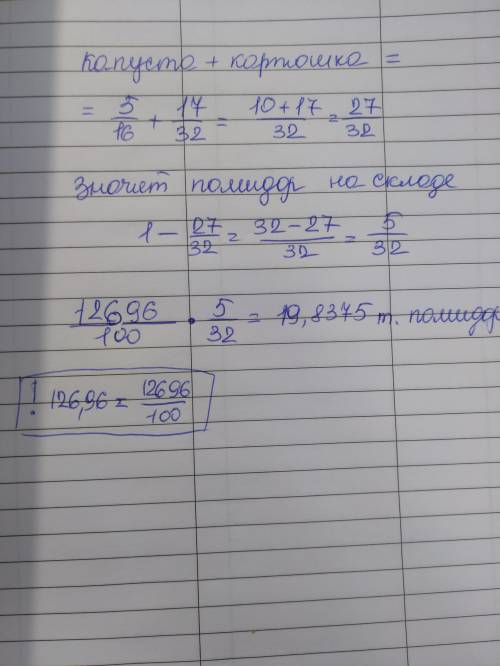 капуста + картошка =
= 5/16 + 17/32 = 10+17/32 = 27/32
значет помидор на складе
1 - 27/32 = 32-27/32 = 5/32
12696/100 · 5/32 = 19,8375 т. помидор
! 126,96 = 12696/100